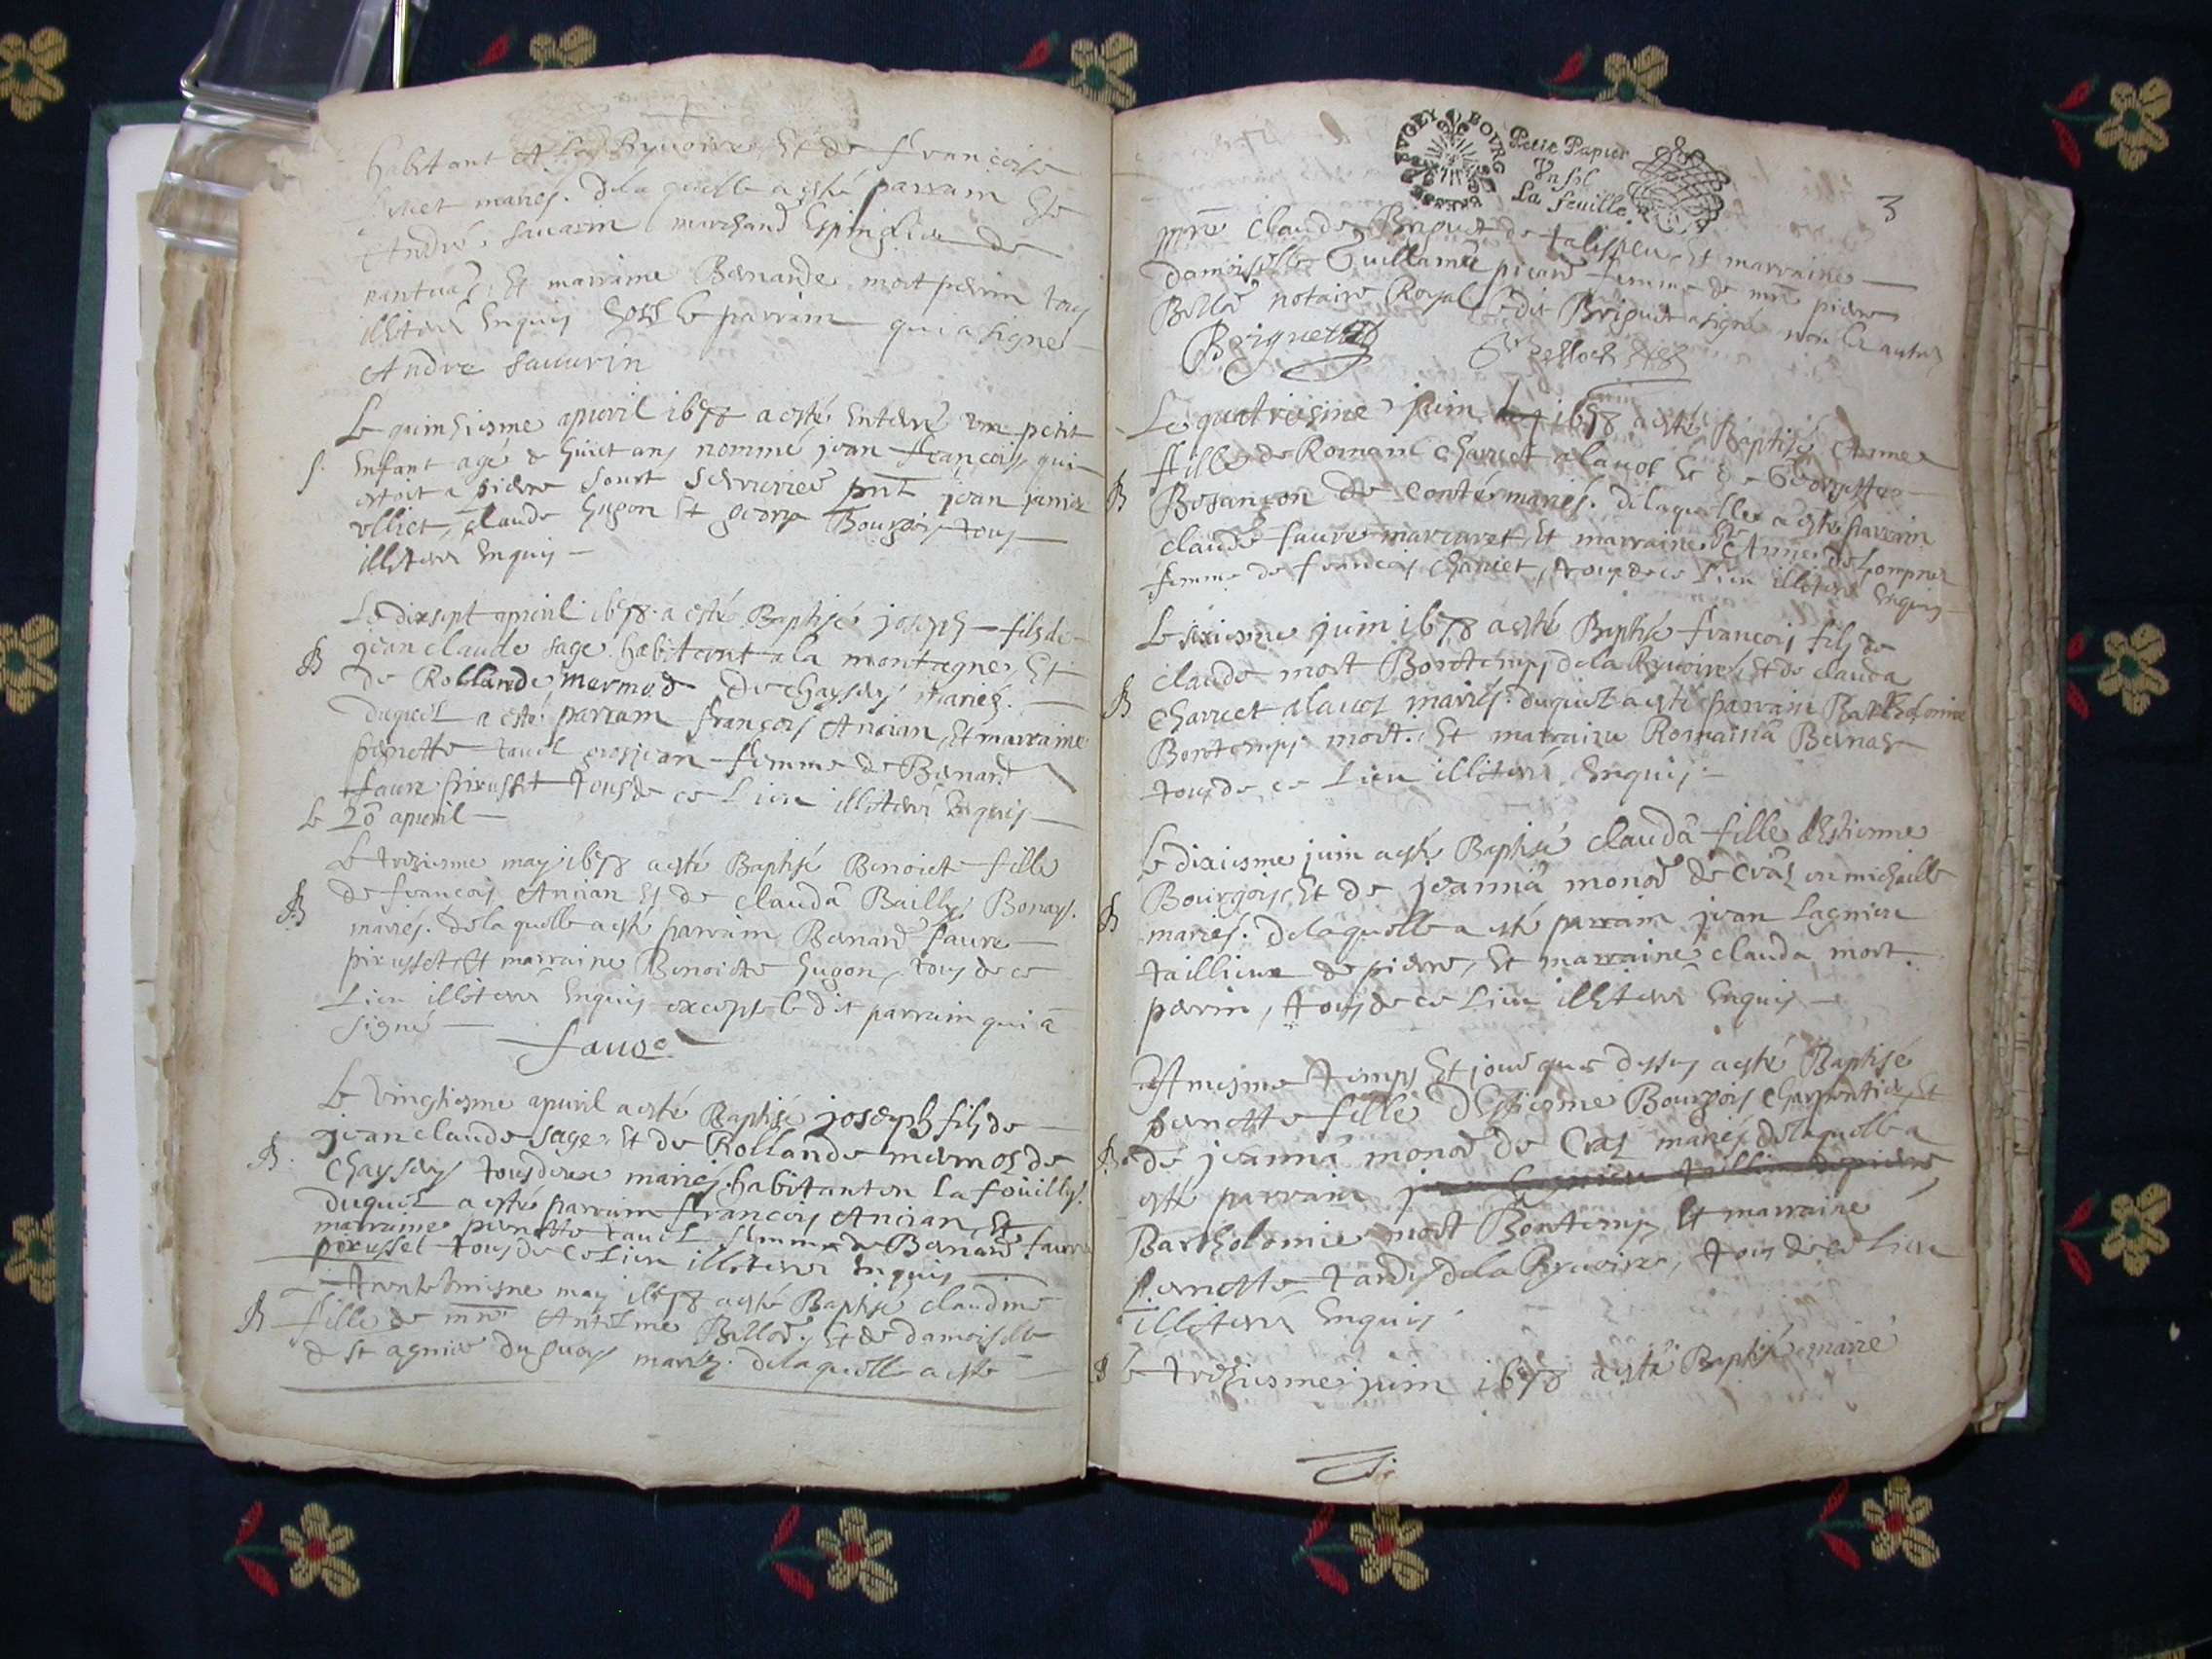 habitant A la Byuoire, Et de francoise
mariés. De la quelle a esté parrain Sr
André Sauarin marchand Espinglier de
nantua, Et marraine Bernarde mort perrin tous
illiterés Enquis hors le parrain qui a signé
Andre Sauurin
Le quinziesme apuril 1678 a esté Enterré vn petit
S. Enfant agé de huict ans nommé jean francois qui
estoit a pierre Court Serrurier pnt jean janier
vlliet, claude hugon Et george Bourgois tous
illiterés Enquis
Le dixsept apuril 1678 a esté Baptisé joseph fils de
B jean claude sage habitant a la montagne, Et
de Rollande mermod de chaysey mariés.
duquel a esté parrain françois Ancian, Et marraine
pernette tauel grosjean femme de Bernard
faure pirusset tous de ce Lieu illiterés Enquis
Le 20 apuril
Le treziesme may 1678 a esté Baptisé Benoicte fille
B de francois Ancian Et de clauda Bailly Bonays.
mariés. De la quelle a esté parrain Bernard faure
pirusset, Et marraine Benoicte hugon, tous de ce
Lieu illiterés Enquis excepte le dit parrain qui a
signé
faure
Le vingtiesme apuril a esté Baptisé joseph fils de
B. jean claude sage, Et de Rollande mermod de
chaysey tous deux mariés. habitant en la foüilly.
duquel a esté parrain francois Ancian, Et
marraine pernette tauel femme de Bernard faure
pirusset tous de ce Lieu illiterés Enquis
Le trente may 1678 a esté Baptisé claudine
B fille de mre Antelme Billod, Et de damoiselle
mariés. de la quelle a esté
BVGEY BOVRG
Petit Papier
Vn sol
La feuille.
3
mre claude Briguet de talissieu, Et marraine
damoiselle Guillama picard femme de mre pierre
Billod notaire Royal, le dit Briguet a signé non les autres
Briguet
Le quatriesme juin 1678 a esté Baptisé Anne
fille de Romain charuet alauos Et de Georgette
B Besançon de Conté mariés. de la quelle a esté parrain
claude faure marcaret, Et marraine Anne
femme de francois charuet, tous de ce Lieu illiterés Enquis
Le sixiesme juin 1678 a esté Baptisé francois fils de
claude mort Bontemps de la Byuoire, Et de clauda
B charuet alauos mariés. duquel a esté parrain Bartholomie
Bontemps mort. Et marraine Romaina Bernard
tous de ce Lieu illiterés Enquis
Le dixiesme juin a esté Baptisé clauda fille d'Estienne
Bourgois, Et de jeanna monod de Cras en michaille
B mariés. De la quelle a esté parrain jean Lagnieu
taillieur de pierre, Et marraine clauda mort.
perrin, tous de ce Lieu illiterés Enquis
A mesme temps Et jour que dessus a esté Baptisé
pernette fille d'Estienne Bourgois charpentier, Et
B. de jeanna monod de Cras mariés, de la quelle a
esté parrain jean Lagnieu taillieur de pierre,
Bartholomie mort Bontemps, Et marraine
pernette tardy de la Byuoire, tous de ce Lieu
illiterés Enquis.
B Le treziesme juin 1678 a esté Baptisé marie